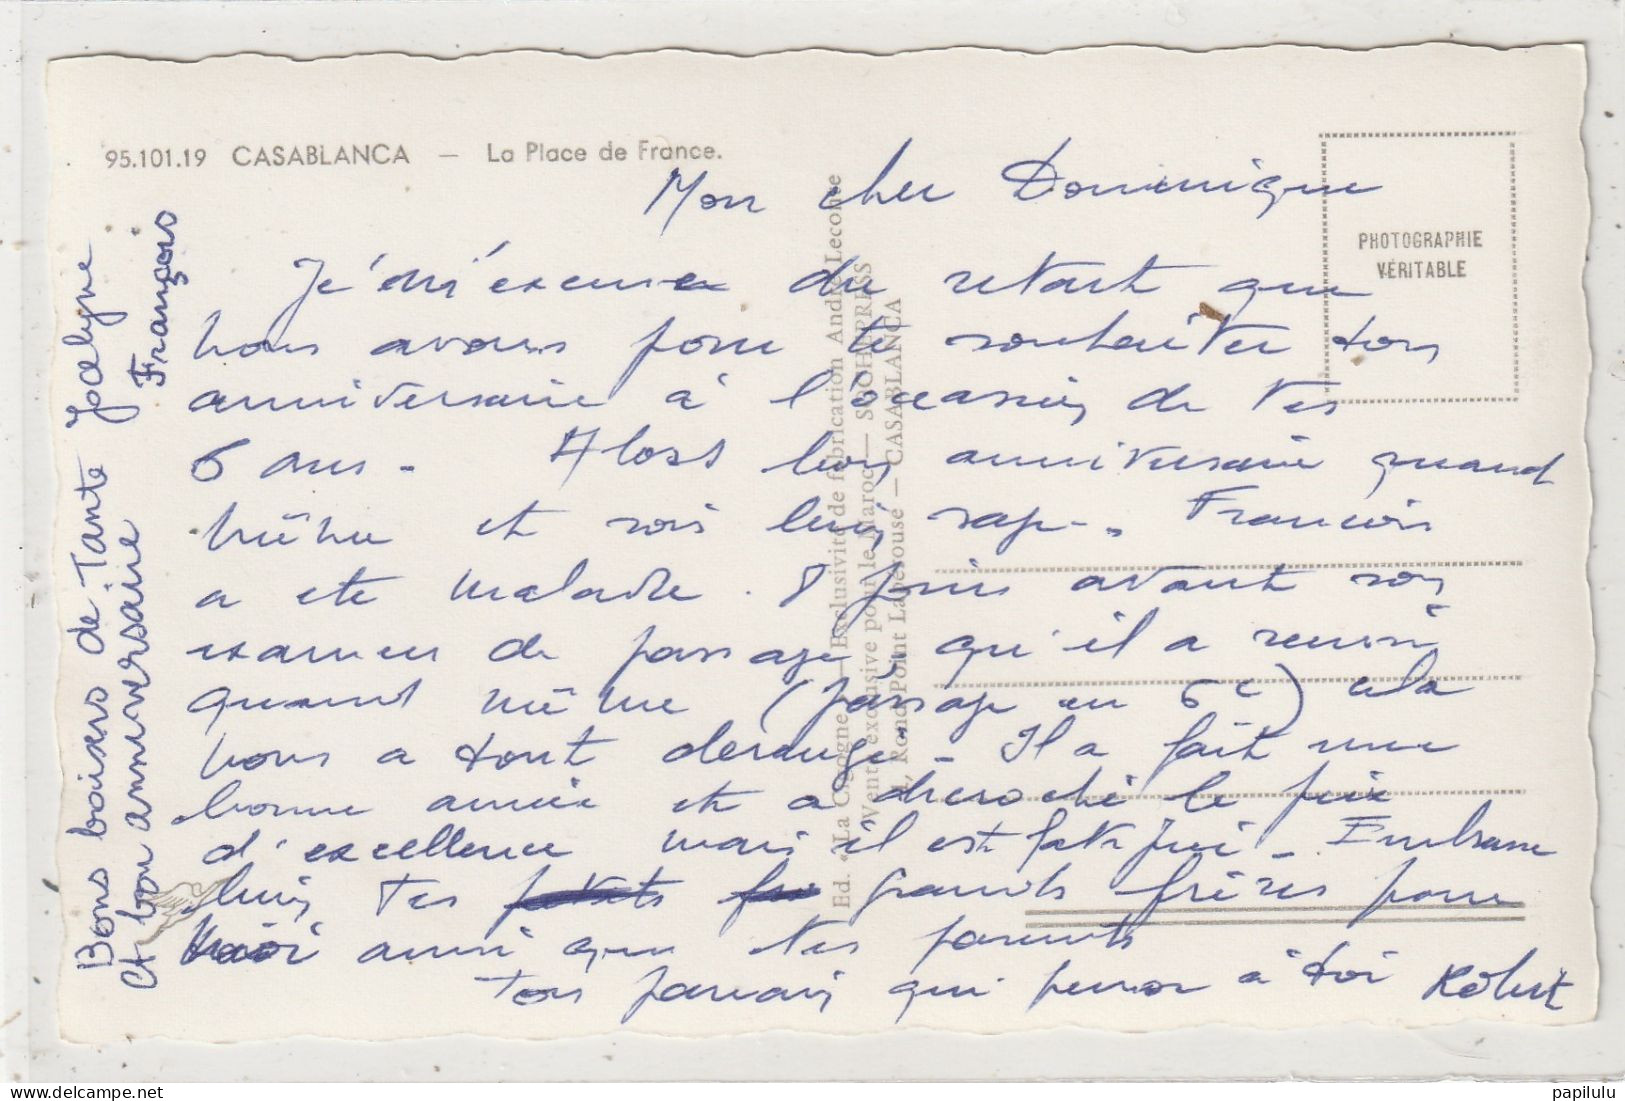 95.101.19 CASABLANCA — La Place de France.
PHOTOGRAPHIE
VÉRITABLE
Mon cher Dominique
Je m'excuse du retart que
nous avons pour te souhaiter ton
anniversaire à l'occasion de tes
6 ans - Alors bon anniversaire quand
même et sois bien sage. Francois
a ete malade. 8 jours avant son
examen de passage qu'il a reussi
quand même (passage en 6e) cela
nous a tout derangé - Il a fait une
bonne année et a décroché le prix
d'excellence mais il est fatigué - Embrasse
bien tes grands frères pour
moi ainsi que tes parents
Ton parrain qui pense à toi Robert
Bons baisers de Tante Jocelyne
et bon anniversaire François
Ed. «La Cigogne» — Exclusivité de fabrication André Leconte
Vente exclusive pour le Maroc — SOCHEPRESS
1, Rond-Point Lapérouse — CASABLANCA
papilulu